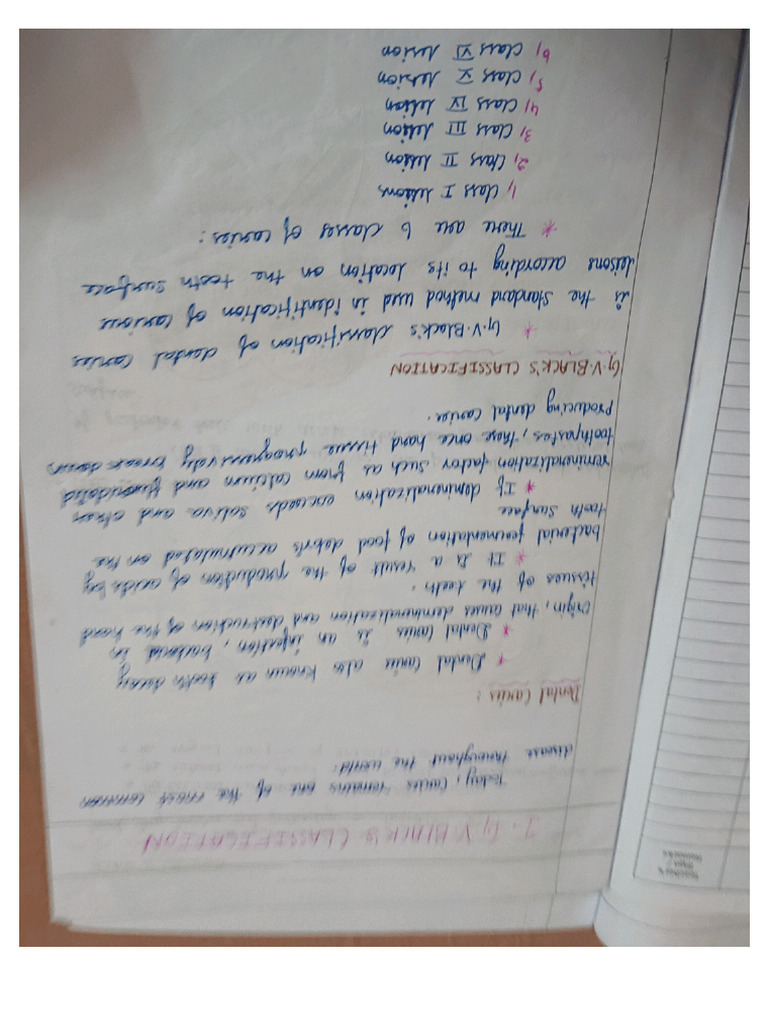 7. G.V. BLACK'S CLASSIFICATION
Today, Caries remains one of the most common
disease throughout the world.
Dental Caries :
* Dental Caries also known as tooth decay
* Dental Caries is an infection, bacterial in
Origin, that causes demineralization and destruction of the hard
tissues of the teeth.
* It is a result of the production of acids by
bacterial fermentation of food debris accumulated on the
tooth surface
* If demineralization exceeds saliva and other
remineralization factor such as from calcium and fluoridated
toothpastes, these once hard tissue progressively break down
Producing dental caries.
G.V. BLACK'S CLASSIFICATION
* G.V. Black's classification of dental caries
is the standard method used in identification of carious
leisons according to its location on the tooth surface
* There are 6 classes of caries :
1, Class I lesions
2, Class II lesion
3, Class III lesion
4, Class IV lesion
5, Class V lesion
6, Class VI lesion
Teacher's
Sign /
Remarks